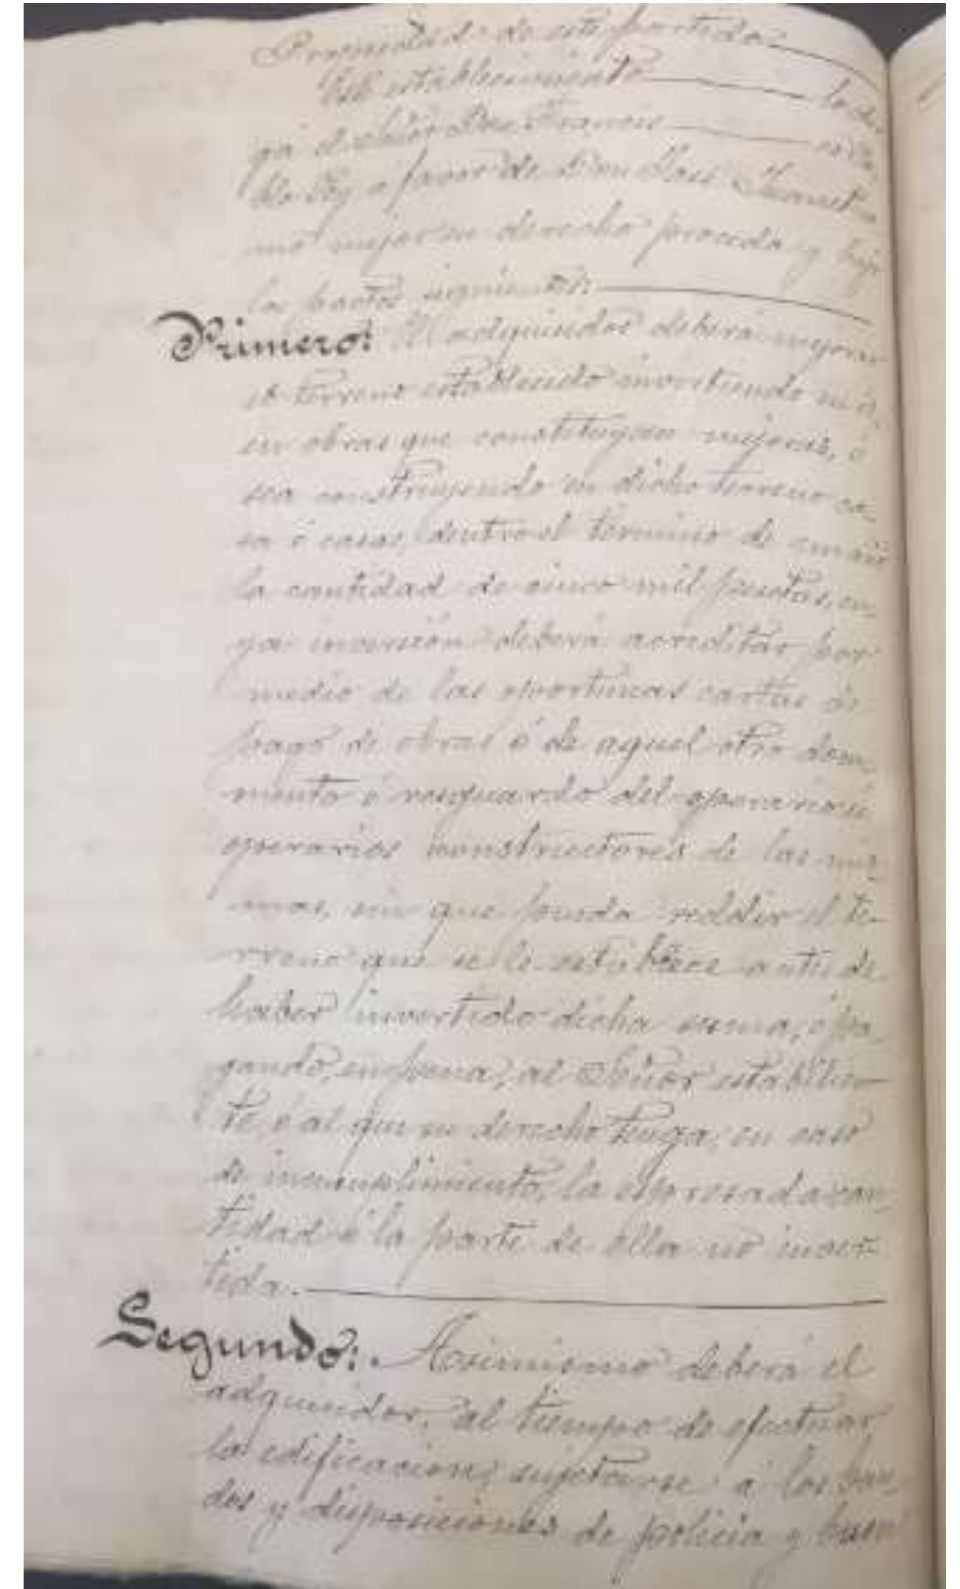 Propiedad de este partido
Tal establecimiento lo otor
ga el Señor Don Francis co Pa
blo Rey a favor de Don José
mo mejor en derecho proceda y bajo
los pactos siguientes:
Primero: El adquisidor deberá mejorar
el terreno establecido invirtiendo en él,
en obras que constituyan mejoras, ó
sea construyendo en dicho terreno ca-
sa ó casas, dentro el término de un año
la cantidad de cinco mil pesetas, cu-
ya inversión deberá acreditar por
medio de las oportunas cartas de
pago de obras ó de aquel otro docu-
mento ó resguardo del operario ú
operarios constructores de las mis-
mas, sin que pueda reddir el te-
rreno que se le establece antes de
haber invertido dicha suma, ó pa-
gando, en pena, al Señor establicien-
te, ó al que su derecho tenga, en caso
de incumplimiento, la espresada can-
tidad ó la parte de ella no inver-
tida.
Segundo:. Asimismo deberá el
adquisidor, al tiempo de efectuar
la edificación, sujetarse á los ban-
dos y disposiciones de policía y buen